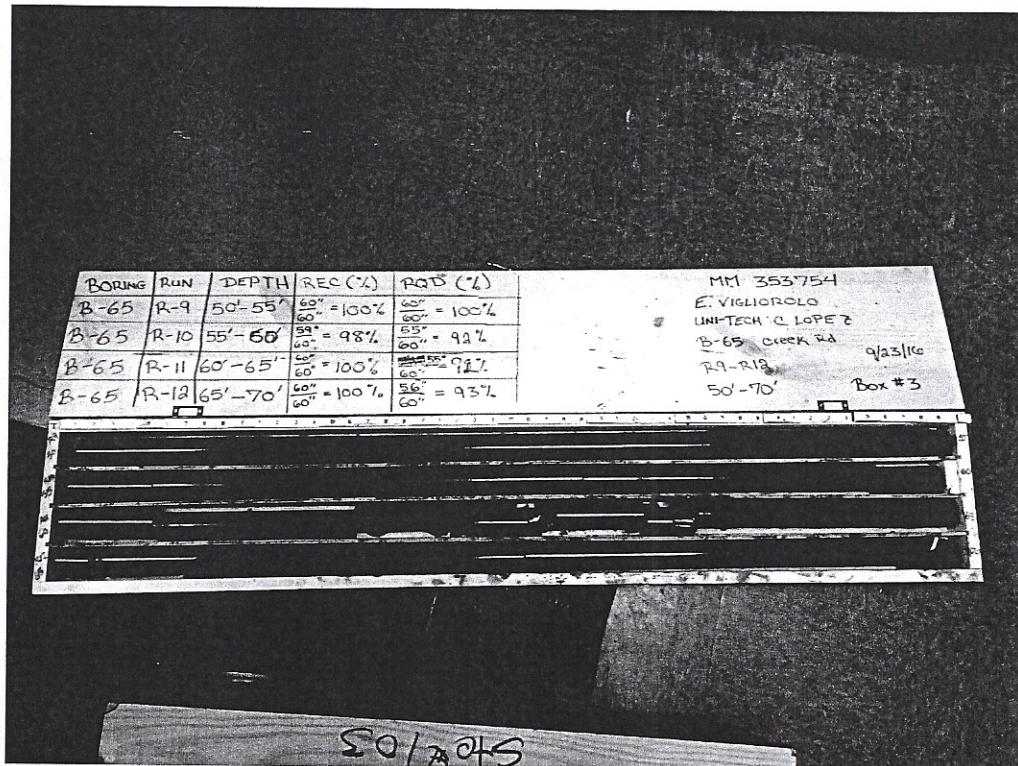 BORING RUN DEPTH REC (%) RQD (%)
B-65 R-9 50'-55' 60"/60" = 100% 60"/60" = 100%
B-65 R-10 55'-60' 59"/60" = 98% 55"/60" = 92%
B-65 R-11 60'-65' 60"/60" = 100% 55"/60" = 92%
B-65 R-12 65'-70' 60"/60" = 100% 56"/60" = 93%
MM 353754
E. VIGLIOROLO
UNI-TECH C. LOPEZ
B-65 Creek Rd
R9-R12 9/23/16
50'-70' Box #3